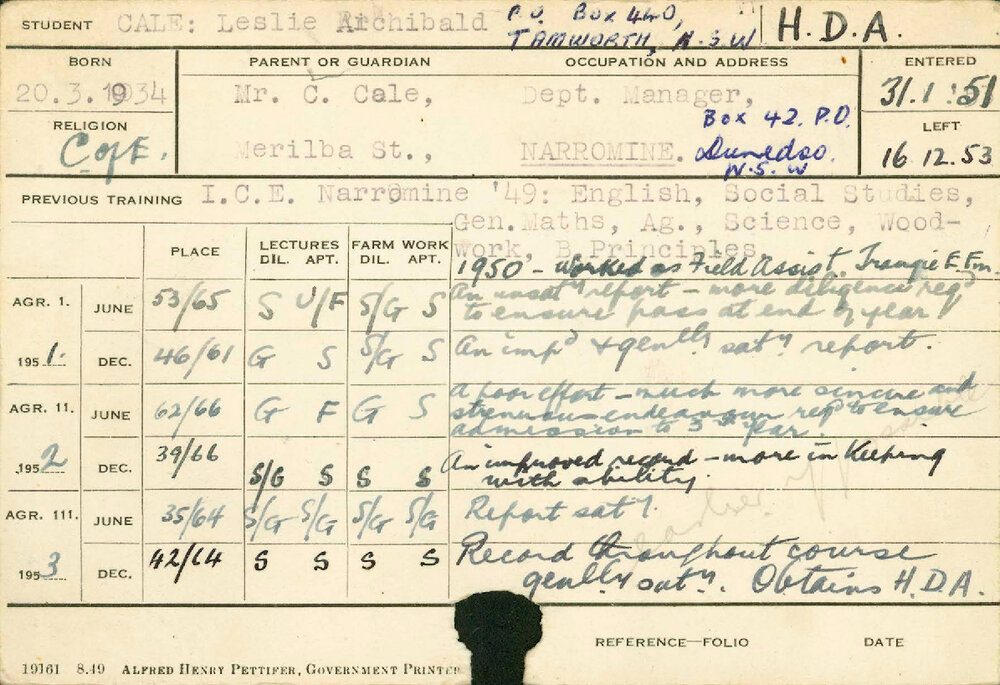 STUDENT CALE: Leslie Archibald P.O. Box 440, H.D.A.
TAMWORTH, N.S.W
BORN PARENT OR GUARDIAN OCCUPATION AND ADDRESS ENTERED
20.3.1934 Mr. C. Cale, Dept. Manager, 31.1.51
Box 42. P.O.
RELIGION LEFT
C of E. Merilba St., NARROMINE. Dunedoo. 16.12.53
N.S.W
PREVIOUS TRAINING I.C.E. Narromine '49: English, Social Studies,
Gen. Maths, Ag., Science, Wood-
work, B.Principles.
PLACE LECTURES FARM WORK
DIL. APT. DIL. APT.
1950 - Worked as Field Assist. Trangie E. Fm.
AGR. 1. JUNE 53/65 S U/F S/G S An unsaty report - more diligence reqd
to ensure pass at end of year
1951. DEC. 46/61 G S S/G S An impd & genlly saty report.
AGR. 11. JUNE 62/66 G F G S A poor effort - much more sincere and
strenuous endeavour reqd to ensure
admission to 3rd Year.
1952 DEC. 39/66 S/G S S S An improved record - more in keeping
with ability.
AGR. 111. JUNE 35/64 S/G S/G S/G S/G Report saty.
1953 DEC. 42/64 S S S S Record throughout course
genlly saty. Obtains H.D.A.
REFERENCE—FOLIO DATE
19161 8.49 ALFRED HENRY PETTIFER, GOVERNMENT PRINTER